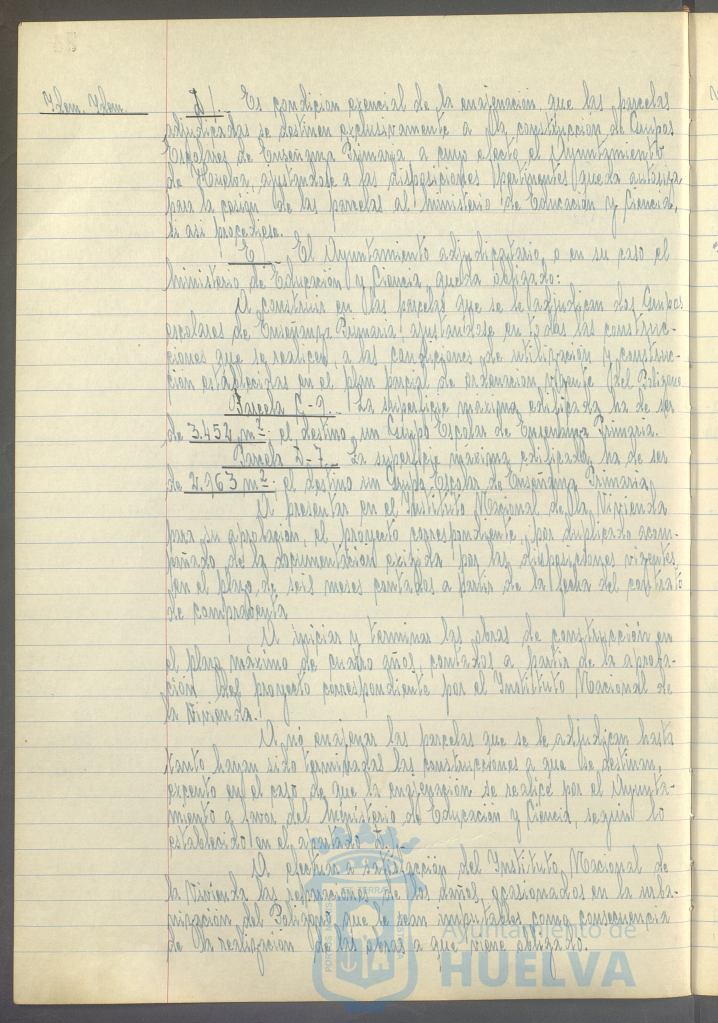 Idem. Idem.
D/.- Es condicion esencial de la enajenación, que las parcelas
adjudicadas se destinen exclusivamente a la construcción de Grupos
Escolares de Enseñanza Primaria a cuyo efecto el Ayuntamiento
de Huelva, ajustandose a las disposiciones pertinentes queda autoriza
para la cesión de las parcelas al Ministerio de Educación y Ciencia,
si asi procediese.
E/ El Ayuntamiento adjudicatario, o en su caso el
Ministerio de Educación y Ciencia queda obligado:
A construir en las parcelas que se le adjudican dos Grupos
escolares de Enseñanza Primaria, ajustandose en todas las construc-
ciones que se realicen, a las condiciones de utilización y construc-
ción establecidas en el plan parcial de ordenacion vigente del Poligono
Parcela G-9.- La superficie maxima edificada ha de ser
de 3.452 m². el destino, un Grupo Escolar de Enseñanza Primaria.
Parcela D-7.- La superficie maxima edificada, ha de ser
de 2.963 m². el destino un Grupo Escolar de Enseñanza Primaria,
A presentar en el Instituto Nacional de la Vivienda
para su aprobacion, el proyecto correspondiente, por duplicado acom-
pañado de la documentacion exigida por las disposiciones vigentes,
en el plazo de seis meses contados a partir de la fecha del contrato
de compraventa
A iniciar y terminar las obras de construcción en
el plazo máximo de cuatro años, contados a partir de la aproba-
ción del proyecto correspondiente por el Instituto Nacional de
la Vivienda.
A nó enajenar las parcelas que se le adjudican hasta
tanto hayan sido terminadas las construcciones a que se destinan,
excepto en el caso de que la enajenación se realice por el Ayunta-
miento a favor del Ministerio de Educación y Ciencia, segun lo
establecido en el apartado
A efectuar a satisfacción del Instituto Nacional de
la Vivienda las reparaciones de los daños ocasionados en la urba-
nización del Poligono que le sean imputables como consecuencia
de la realización de las obras a que viene obligado.
Ayuntamiento de
HUELVA